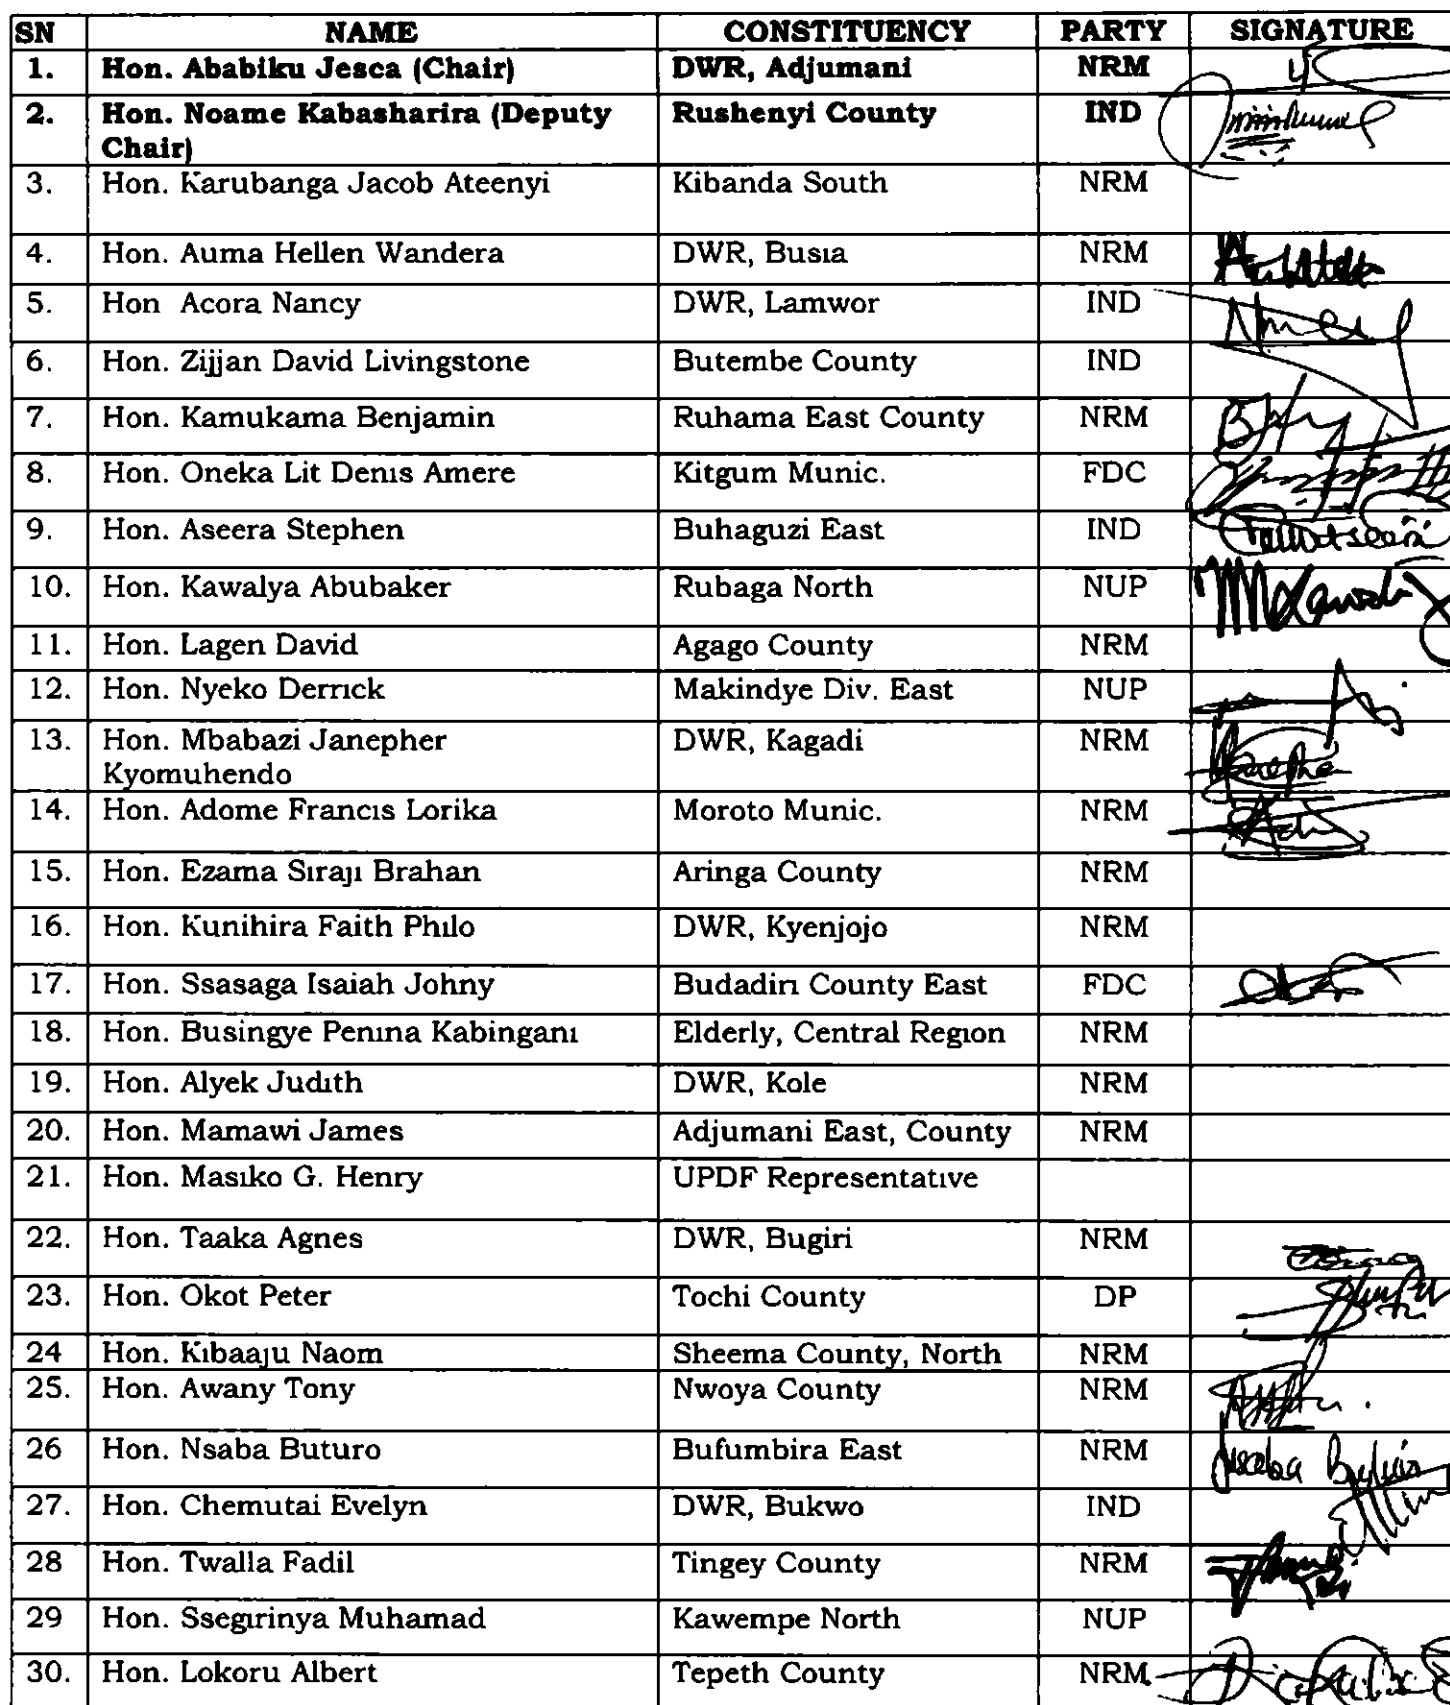 SN NAME CONSTITUENCY PARTY SIGNATURE
1. Hon. Ababiku Jesca (Chair) DWR, Adjumani NRM
2. Hon. Noame Kabasharira (Deputy Chair) Rushenyi County IND
3. Hon. Karubanga Jacob Ateenyi Kibanda South NRM
4. Hon. Auma Hellen Wandera DWR, Busia NRM
5. Hon Acora Nancy DWR, Lamwor IND
6. Hon. Zijjan David Livingstone Butembe County IND
7. Hon. Kamukama Benjamin Ruhama East County NRM
8. Hon. Oneka Lit Denis Amere Kitgum Munic. FDC
9. Hon. Aseera Stephen Buhaguzi East IND
10. Hon. Kawalya Abubaker Rubaga North NUP
11. Hon. Lagen David Agago County NRM
12. Hon. Nyeko Derrick Makindye Div. East NUP
13. Hon. Mbabazi Janepher Kyomuhendo DWR, Kagadi NRM
14. Hon. Adome Francis Lorika Moroto Munic. NRM
15. Hon. Ezama Siraji Brahan Aringa County NRM
16. Hon. Kunihira Faith Philo DWR, Kyenjojo NRM
17. Hon. Ssasaga Isaiah Johny Budadiri County East FDC
18. Hon. Busingye Penina Kabingani Elderly, Central Region NRM
19. Hon. Alyek Judith DWR, Kole NRM
20. Hon. Mamawi James Adjumani East, County NRM
21. Hon. Masiko G. Henry UPDF Representative
22. Hon. Taaka Agnes DWR, Bugiri NRM
23. Hon. Okot Peter Tochi County DP
24 Hon. Kibaaju Naom Sheema County, North NRM
25. Hon. Awany Tony Nwoya County NRM
26 Hon. Nsaba Buturo Bufumbira East NRM
27. Hon. Chemutai Evelyn DWR, Bukwo IND
28 Hon. Twalla Fadil Tingey County NRM
29 Hon. Ssegirinya Muhamad Kawempe North NUP
30. Hon. Lokoru Albert Tepeth County NRM